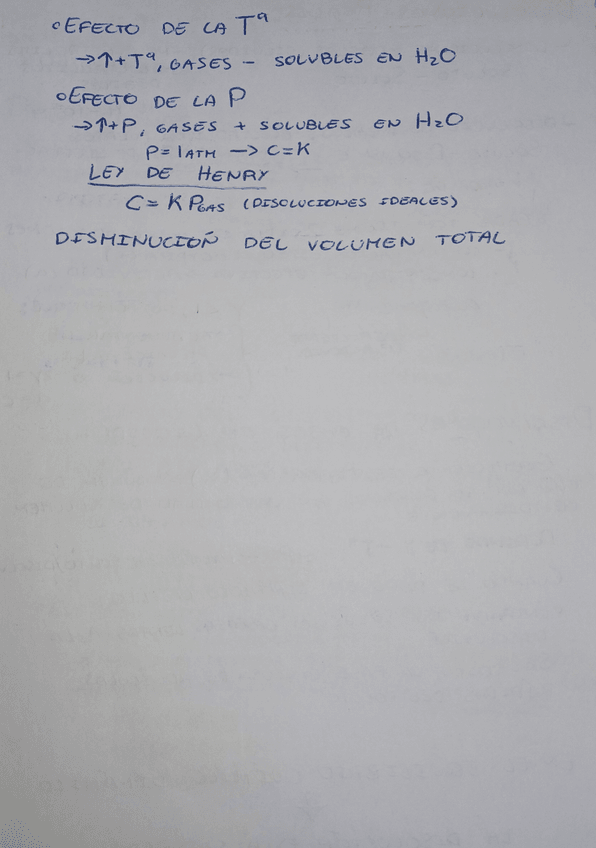 ○ EFECTO DE LA Tª
→ ↑+Tª, GASES – SOLUBLES EN H₂O
○ EFECTO DE LA P
→ ↑+P, GASES + SOLUBLES EN H₂O
P = 1 ATM → C = K
LEY DE HENRY
C = K PGAS (DISOLUCIONES IDEALES)
DISMINUCIÓN DEL VOLUMEN TOTAL